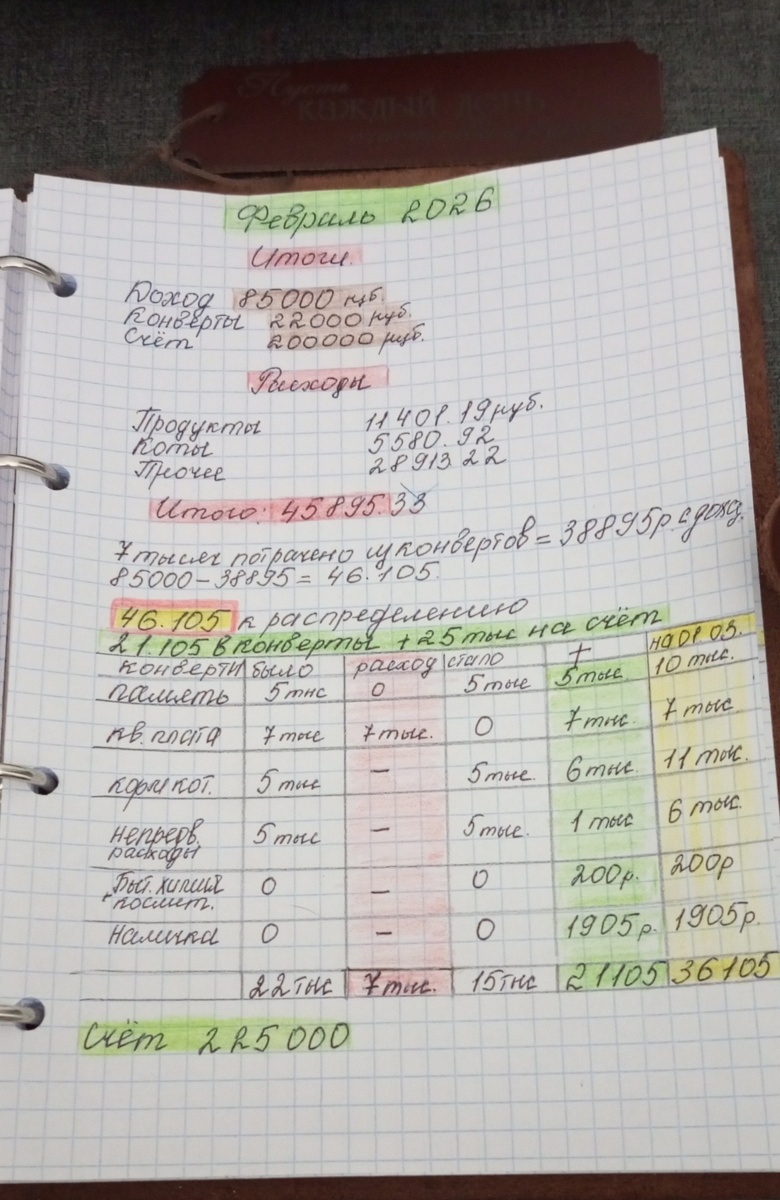 Пусть
КАЖДЫЙ ДЕНЬ
Февраль 2026
Итоги.
Доход 85000 руб.
Конверты 22000 руб.
Счёт 200000 руб.
Расходы
Продукты 11401.19 руб.
Коты 5580.92
Прочее 28913.22
Итого: 45895.33
7 тысяч потрачено из конвертов = 38895р. с доход.
85000 – 38895 = 46.105.
46.105 к распределению
21.105 в конверты + 25 тыс на счёт
конверты было расход стало + на 01.03.
память 5 тыс 0 5 тыс 5 тыс. 10 тыс.
кв. плата 7 тыс 7 тыс. 0 7 тыс. 7 тыс.
корм кот. 5 тыс – 5 тыс. 6 тыс. 11 тыс.
непредв. расходы 5 тыс – 5 тыс. 1 тыс 6 тыс.
Быт. химия космет. 0 – 0 200р. 200р
наличка 0 – 0 1905р. 1905р.
22 тыс 7 тыс. 15 тыс 21105 36105
Счёт 225000